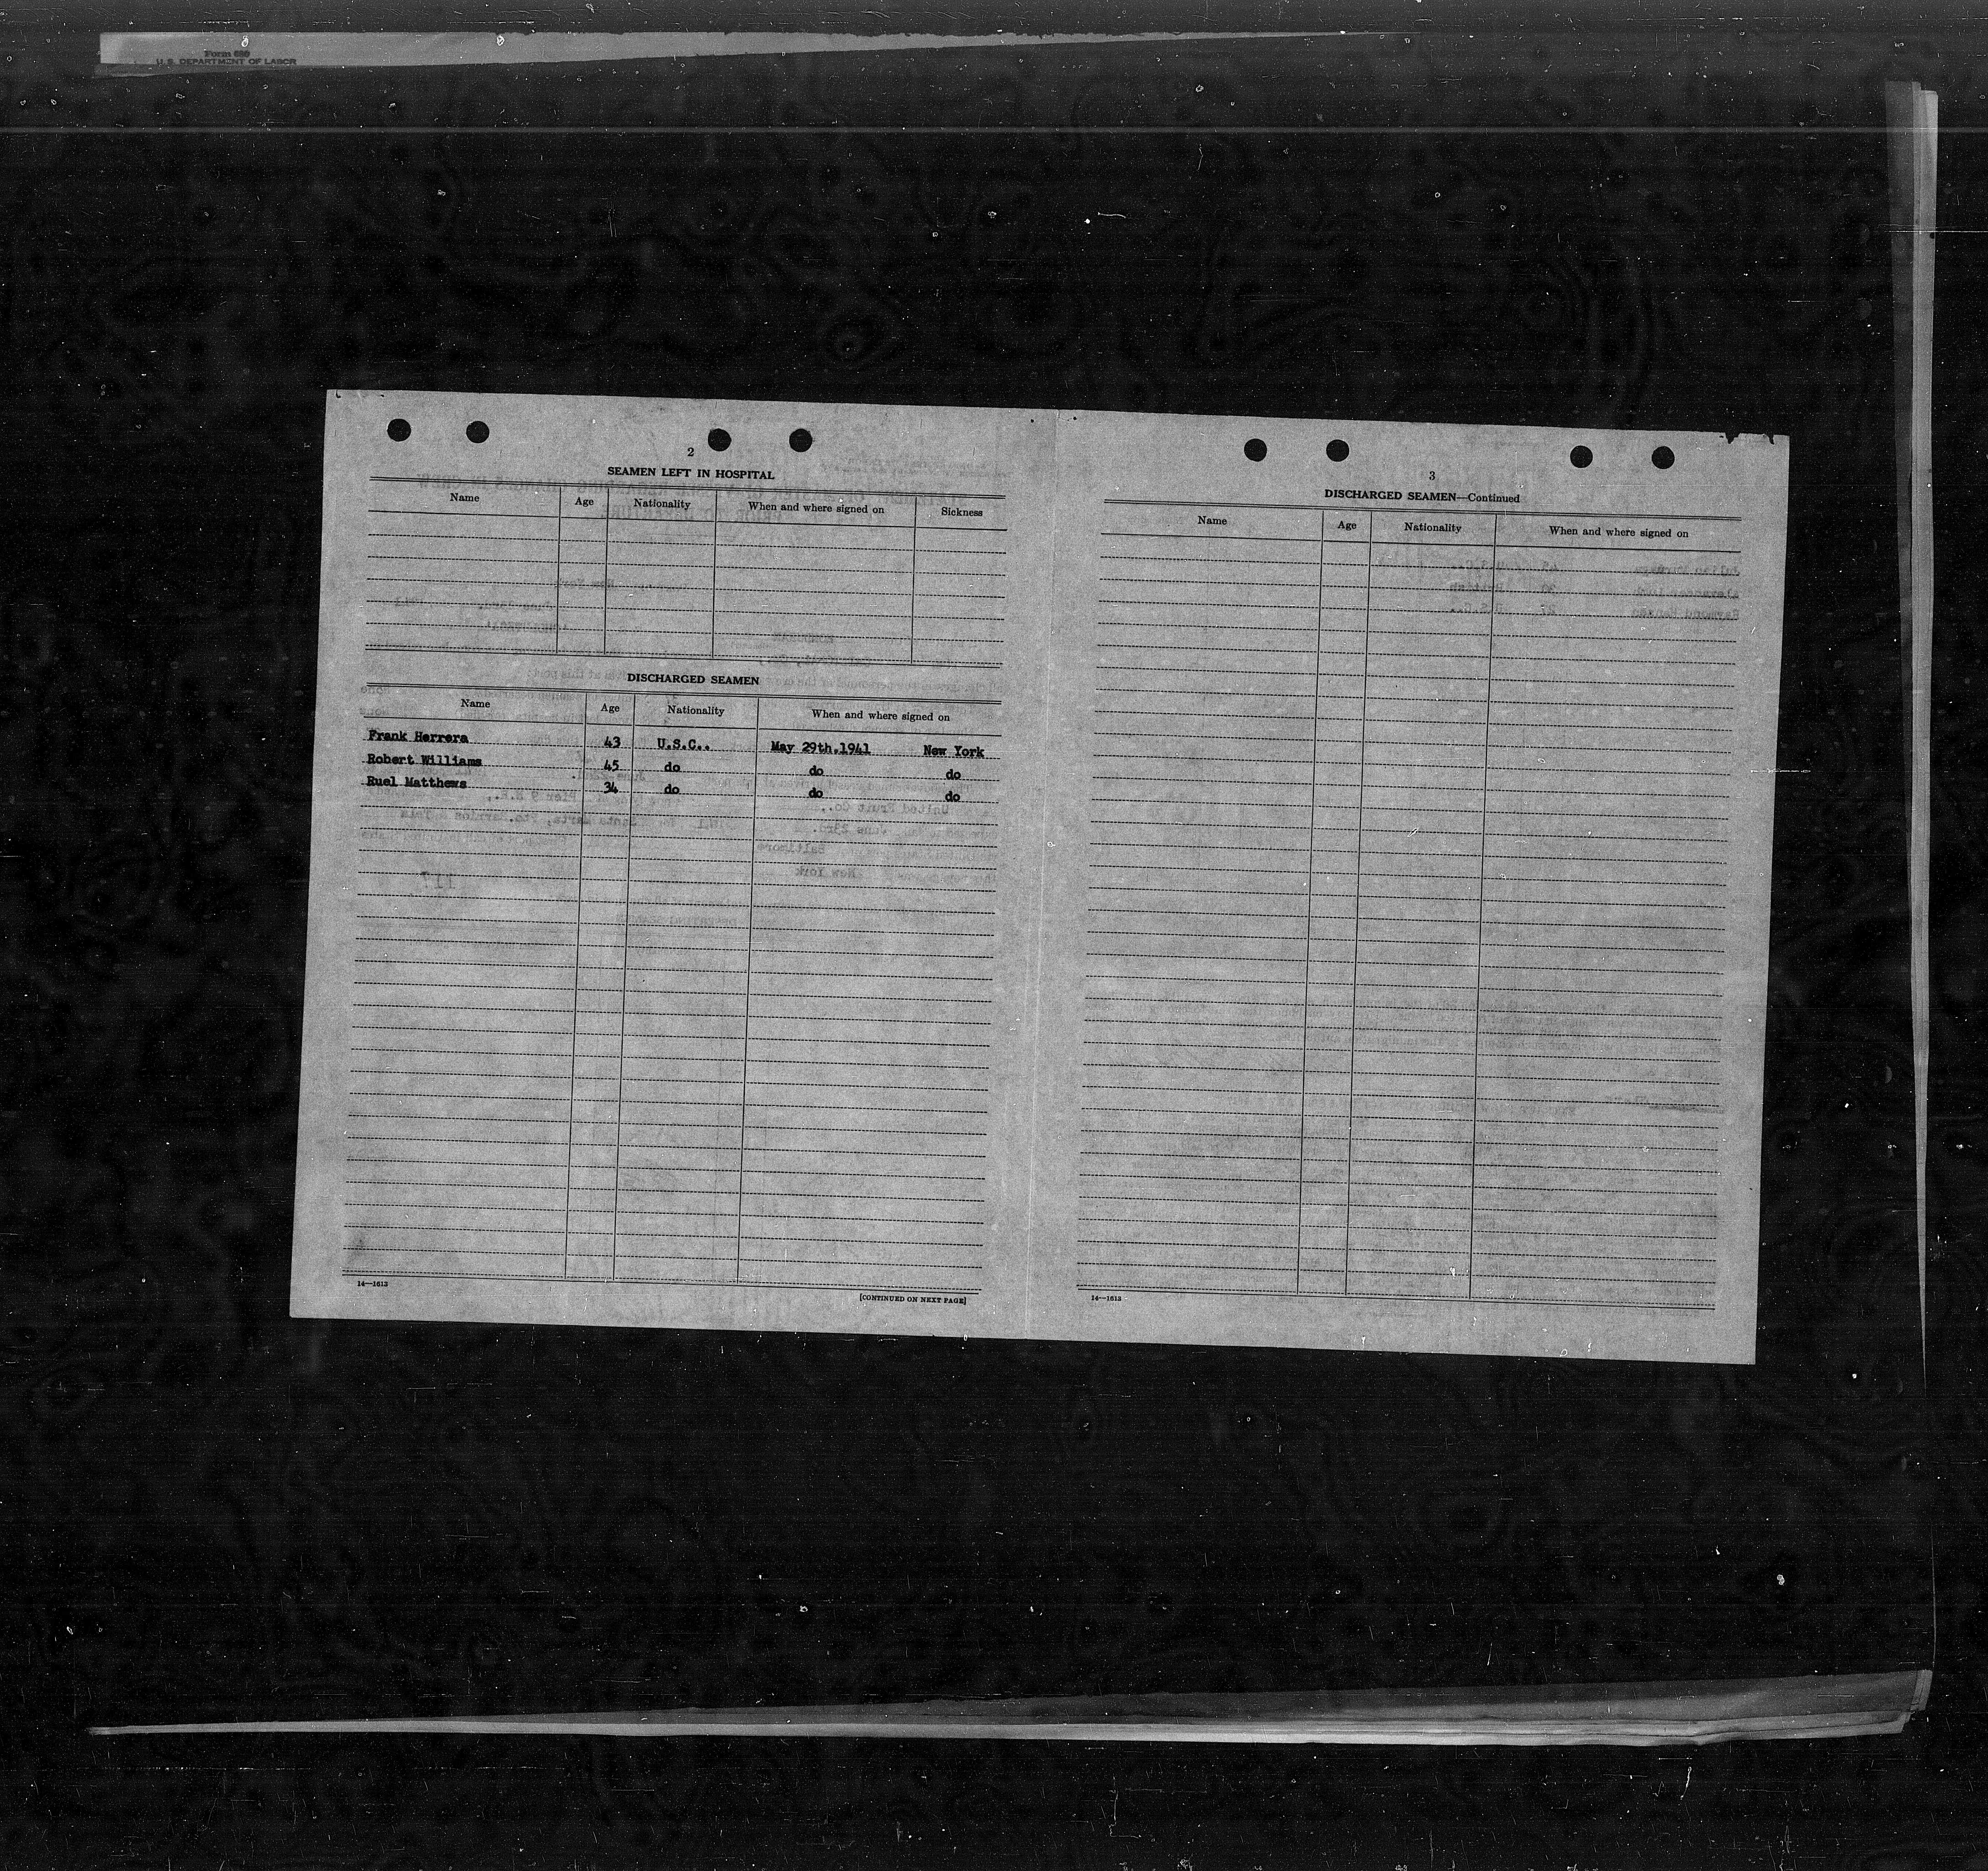 Form 680
U.S. DEPARTMENT OF LABOR
2
SEAMEN LEFT IN HOSPITAL
Name Age Nationality When and where signed on Sickness
DISCHARGED SEAMEN
Name Age Nationality When and where signed on
Frank Herrera 43 U.S.C.. May 29th.1941 New York
Robert Williams 45 do do do
Ruel Matthews 34 do do do
14—1613
[CONTINUED ON NEXT PAGE]
3
DISCHARGED SEAMEN—Continued
Name Age Nationality When and where signed on
14—1613